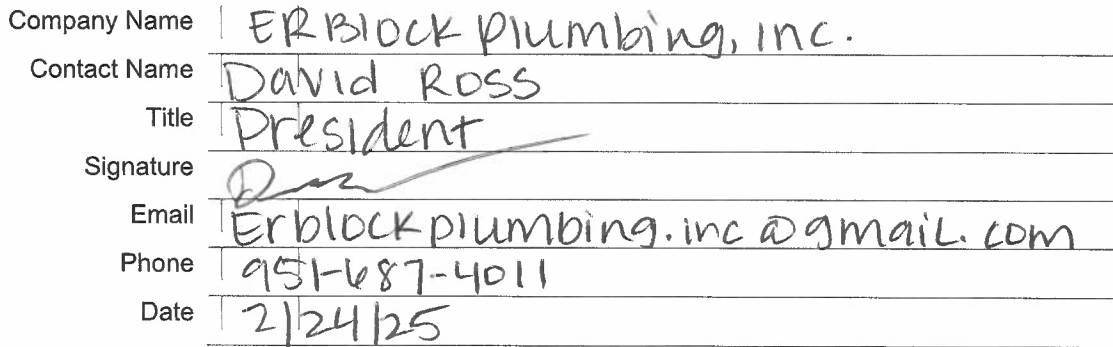 Company Name ERBlock Plumbing, Inc.
Contact Name David Ross
Title President
Signature
Email Erblockplumbing.inc@gmail.com
Phone 951-687-4011
Date 2/24/25